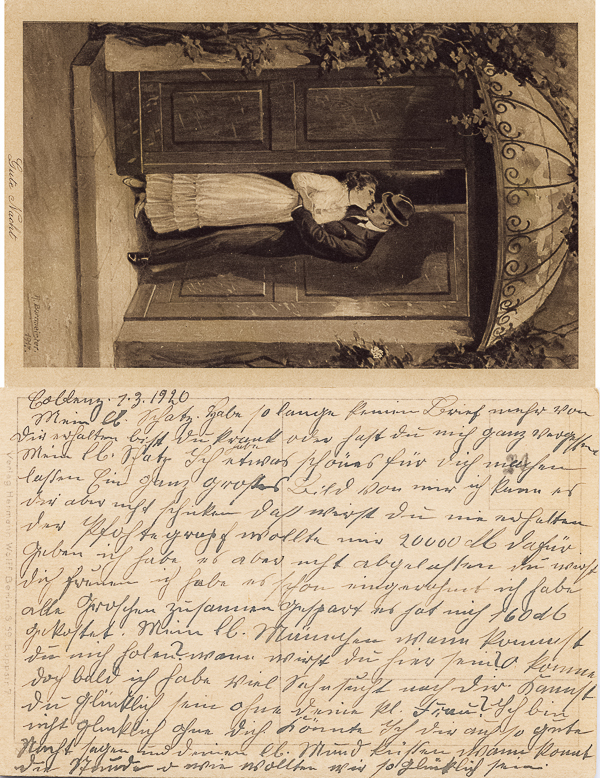 Gute Nacht
Coblenz. 1.3.1920
Mein lb. Schatz. Habe so lange keinen Brief mehr von
dir erhalten bist du krank oder hast du mich ganz vergessen
Mein lb. Schatz Ich habe etwas schönes für dich machen
lassen Ein ganz großes Bild von mir ich kann es
dir aber nicht schicken daß wirst du nie erhalten
der wollte mir 20000 M dafür
geben ich habe es aber nicht abgelassen du wirst
dich freuen ich habe es schon eingerahmt ich habe
alle Groschen zusammen gespart es hat mich 160 M
gekostet. Mein lb. Mannchen wann kommst
du mich holen? wann wirst du hier sein? O komme
doch bald ich habe viel Sehnsucht nach dir Kannst
du glücklich sein ohne deine kl. Frau? Ich bin
nicht glücklich ohne dich Könnte Ich dir auch so gute
Nacht sagen und deinen lb. Mund küssen Wann kommt
die Stunde o wie wollten wir so glücklich sein.
Verlag Hermann Wolff Berlin S